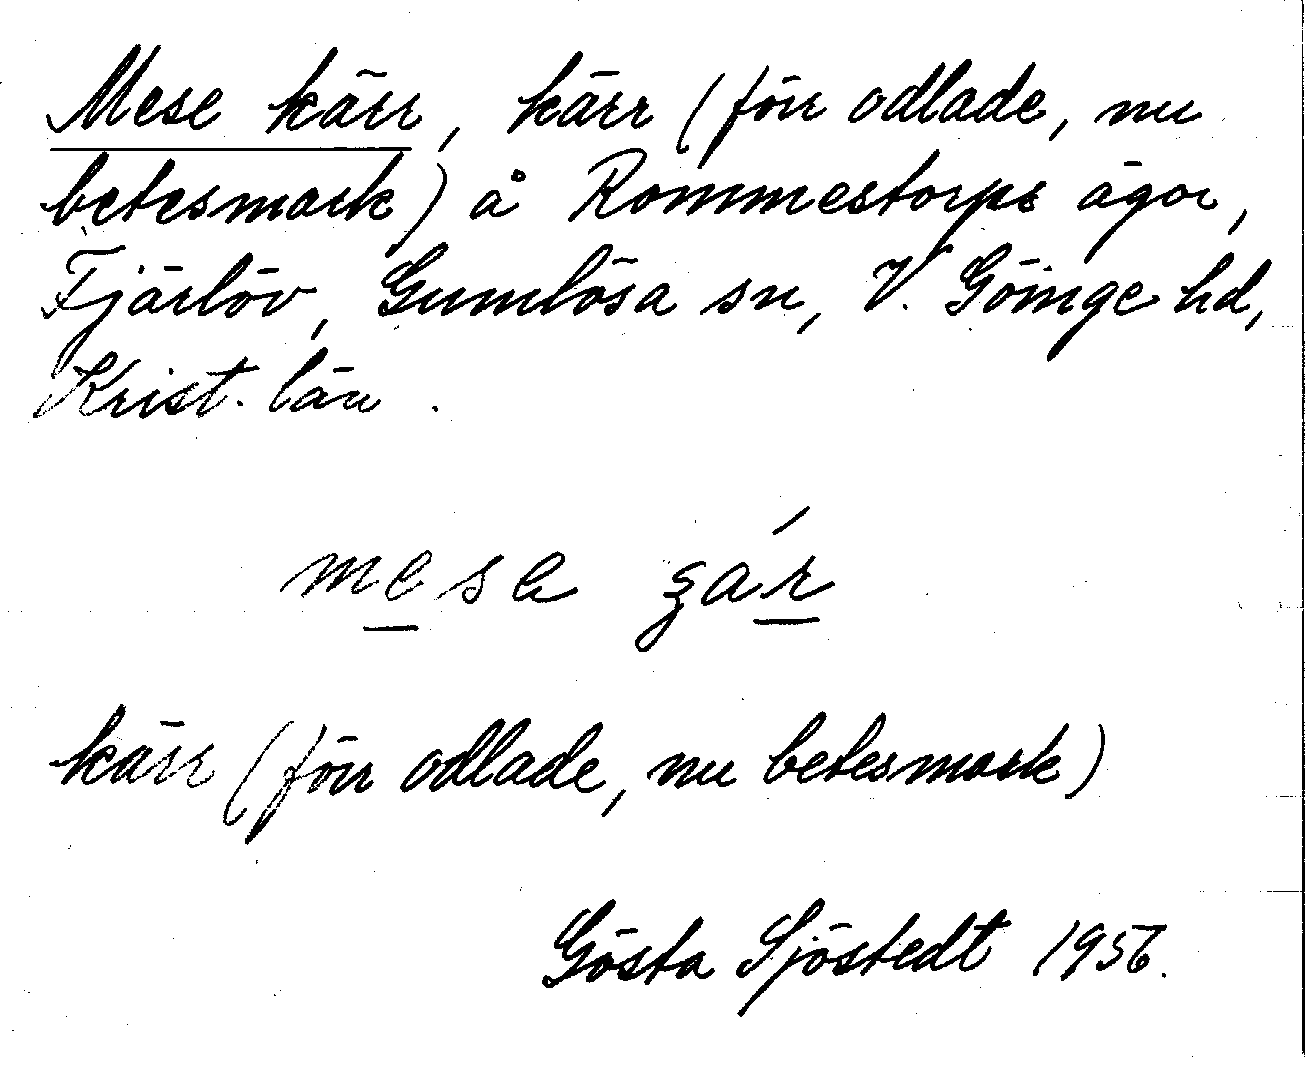 Mese kärr, kärr (förr odlade, nu
betesmark) å Rommestorps ägor,
Fjärlöv, Gumlösa sn, V. Göinge hd,
Krist. län.
mese
kärr (förr odlade, nu betesmark)
Gösta Sjöstedt 1956.